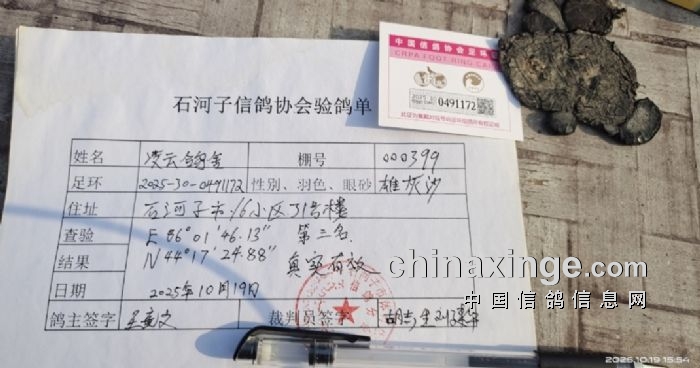 中国信鸽协会足环
CRPA FOOT RING CA
2025-30
0491172
石河子信鸽协会验鸽单
姓名 凌云鸽舍 棚号 000399
足环 2025-30-0491172 性别、羽色、眼砂 雄灰沙
住址 石河子市16小区31号楼
查验 E 86°01′46.13″ 第三名
结果 N 44°17′24.88″ 真实有效
日期 2025年10月19日
鸽主签字 裁判员签字
chinaxinge.com
中国信鸽信息网
2025.10.19 15:54